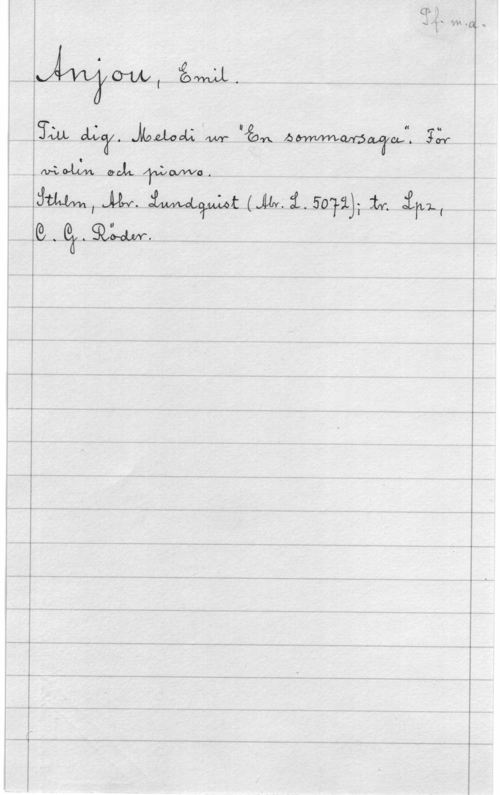 Pf. m.a.
Anjou, Emil.
Till dig. Melodi ur "En sommarsaga". För
violin och piano.
Sthlm, Abr. Lundquist (Abr. L. 5072); tr. Lpz,
C. G. Röder.